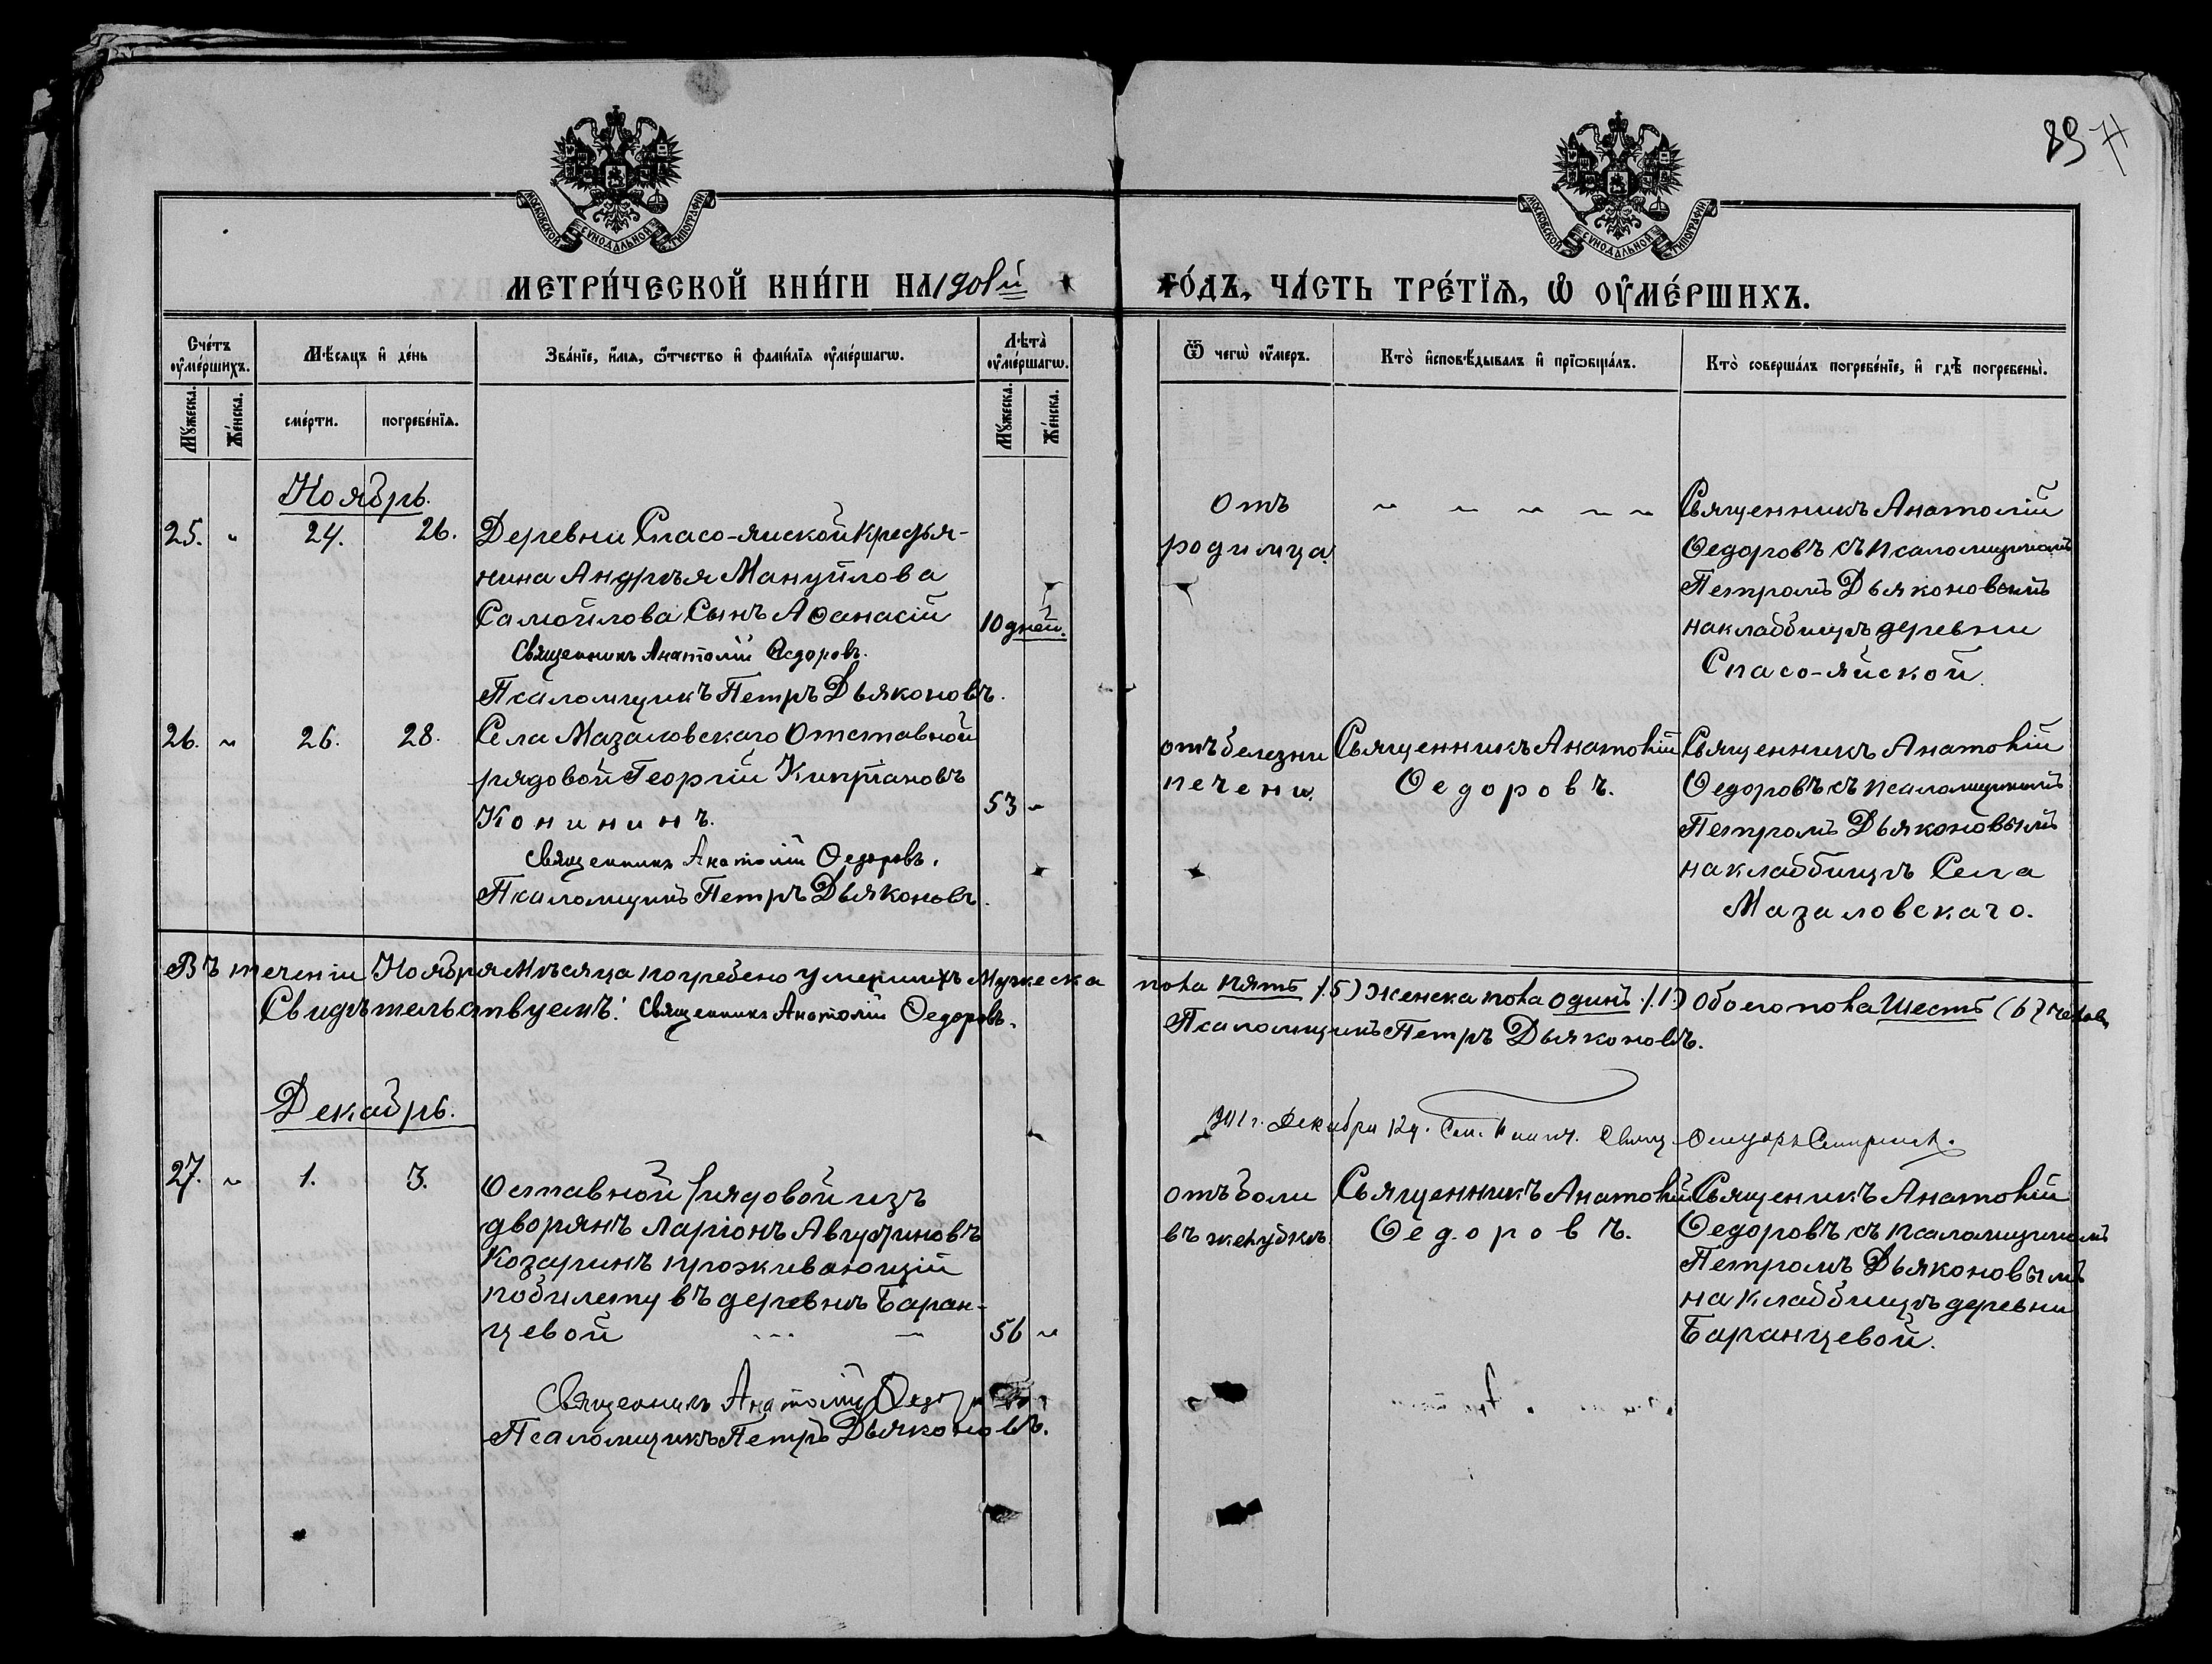 89
МОСКОВСКОЙ СУНОДАЛЬНОЙ ТИПОГРАФІИ
МОСКОВСКОЙ СУНОДАЛЬНОЙ ТИПОГРАФІИ
МЕТРИ́ЧЕСКОЙ КНИ́ГИ НА 1901й
ГО́ДЪ, ЧА́СТЬ ТРЕ́ТЇѦ, Ѡ҆ ОУ҆МЕ́РШИХЪ.
Сче́тъ оу҆ме́ршихъ.
Мꙋ́жеска.
Же́нска.
Мѣ́сяцъ и҆ де́нь
сме́рти.
погребе́нїѧ.
Зва́нїе, и҆́мѧ, ѻ҆́тчество и҆ фами́лїѧ оу҆ме́ршагѡ.
Лѣ́та оу҆ме́ршагѡ.
Мꙋ́жеска.
Же́нска.
Ѿ чегѡ̀ оу҆́меръ.
Кто̀ и҆сповѣ́дывалъ и҆ прїѡбща́лъ.
Кто̀ соверша́лъ погребе́нїе, и҆ гдѣ̀ погребены̀.
Ноябрь.
25. " 24. 26.
Деревни Спасо-яйской Крестья-
нина Андрѣя Мануйлова
Самойлова Сынъ Аѳанасій
10 дней.
Священникъ Анатолій Ѳедоровъ.
Псаломщикъ Петръ Дьяконовъ.
Отъ
родимца.
Священникъ Анатолій
Ѳедоровъ съ псаломщикомъ
Петромъ Дьяконовымъ
на кладбищѣ деревни
Спасо-яйской.
26. " 26. 28.
Села Мазаловскаго Отставной
рядовой Георгій Кипріановъ
Конининъ.
53 "
Священникъ Анатолій Ѳедоровъ.
Псаломщикъ Петръ Дьяконовъ.
отъ болезни
печени.
Священникъ Анатолій
Ѳедоровъ.
Священникъ Анатолій
Ѳедоровъ съ псаломщикомъ
Петромъ Дьяконовымъ
на кладбищѣ Села
Мазаловскаго.
Въ теченіи Ноября Мѣсяца погребено умершихъ Мужеска пола пять (5) женска пола одинъ (1) Обоего пола Шесть (6) челов.
Свидѣтельствуемъ: Священникъ Анатолій Ѳедоровъ.
Псаломщикъ Петръ Дьяконовъ.
Декабрь.
1901 г. Декабря 12 д.
27. " 1. 3.
Оставной рядовой изъ
дворянъ Ларіонъ Августиновъ
Козаринъ проживающій
по билету въ деревнѣ Баран-
цевой
56 "
Священникъ Анатолій
Псаломщикъ Петръ Дьяконовъ.
отъ боли
въ желудкѣ
Священникъ Анатолій
Ѳедоровъ.
Священикъ Анатолій
Ѳедоровъ съ псаломщикомъ
Петромъ Дьяконовымъ
на кладбищѣ деревни
Баранцевой.